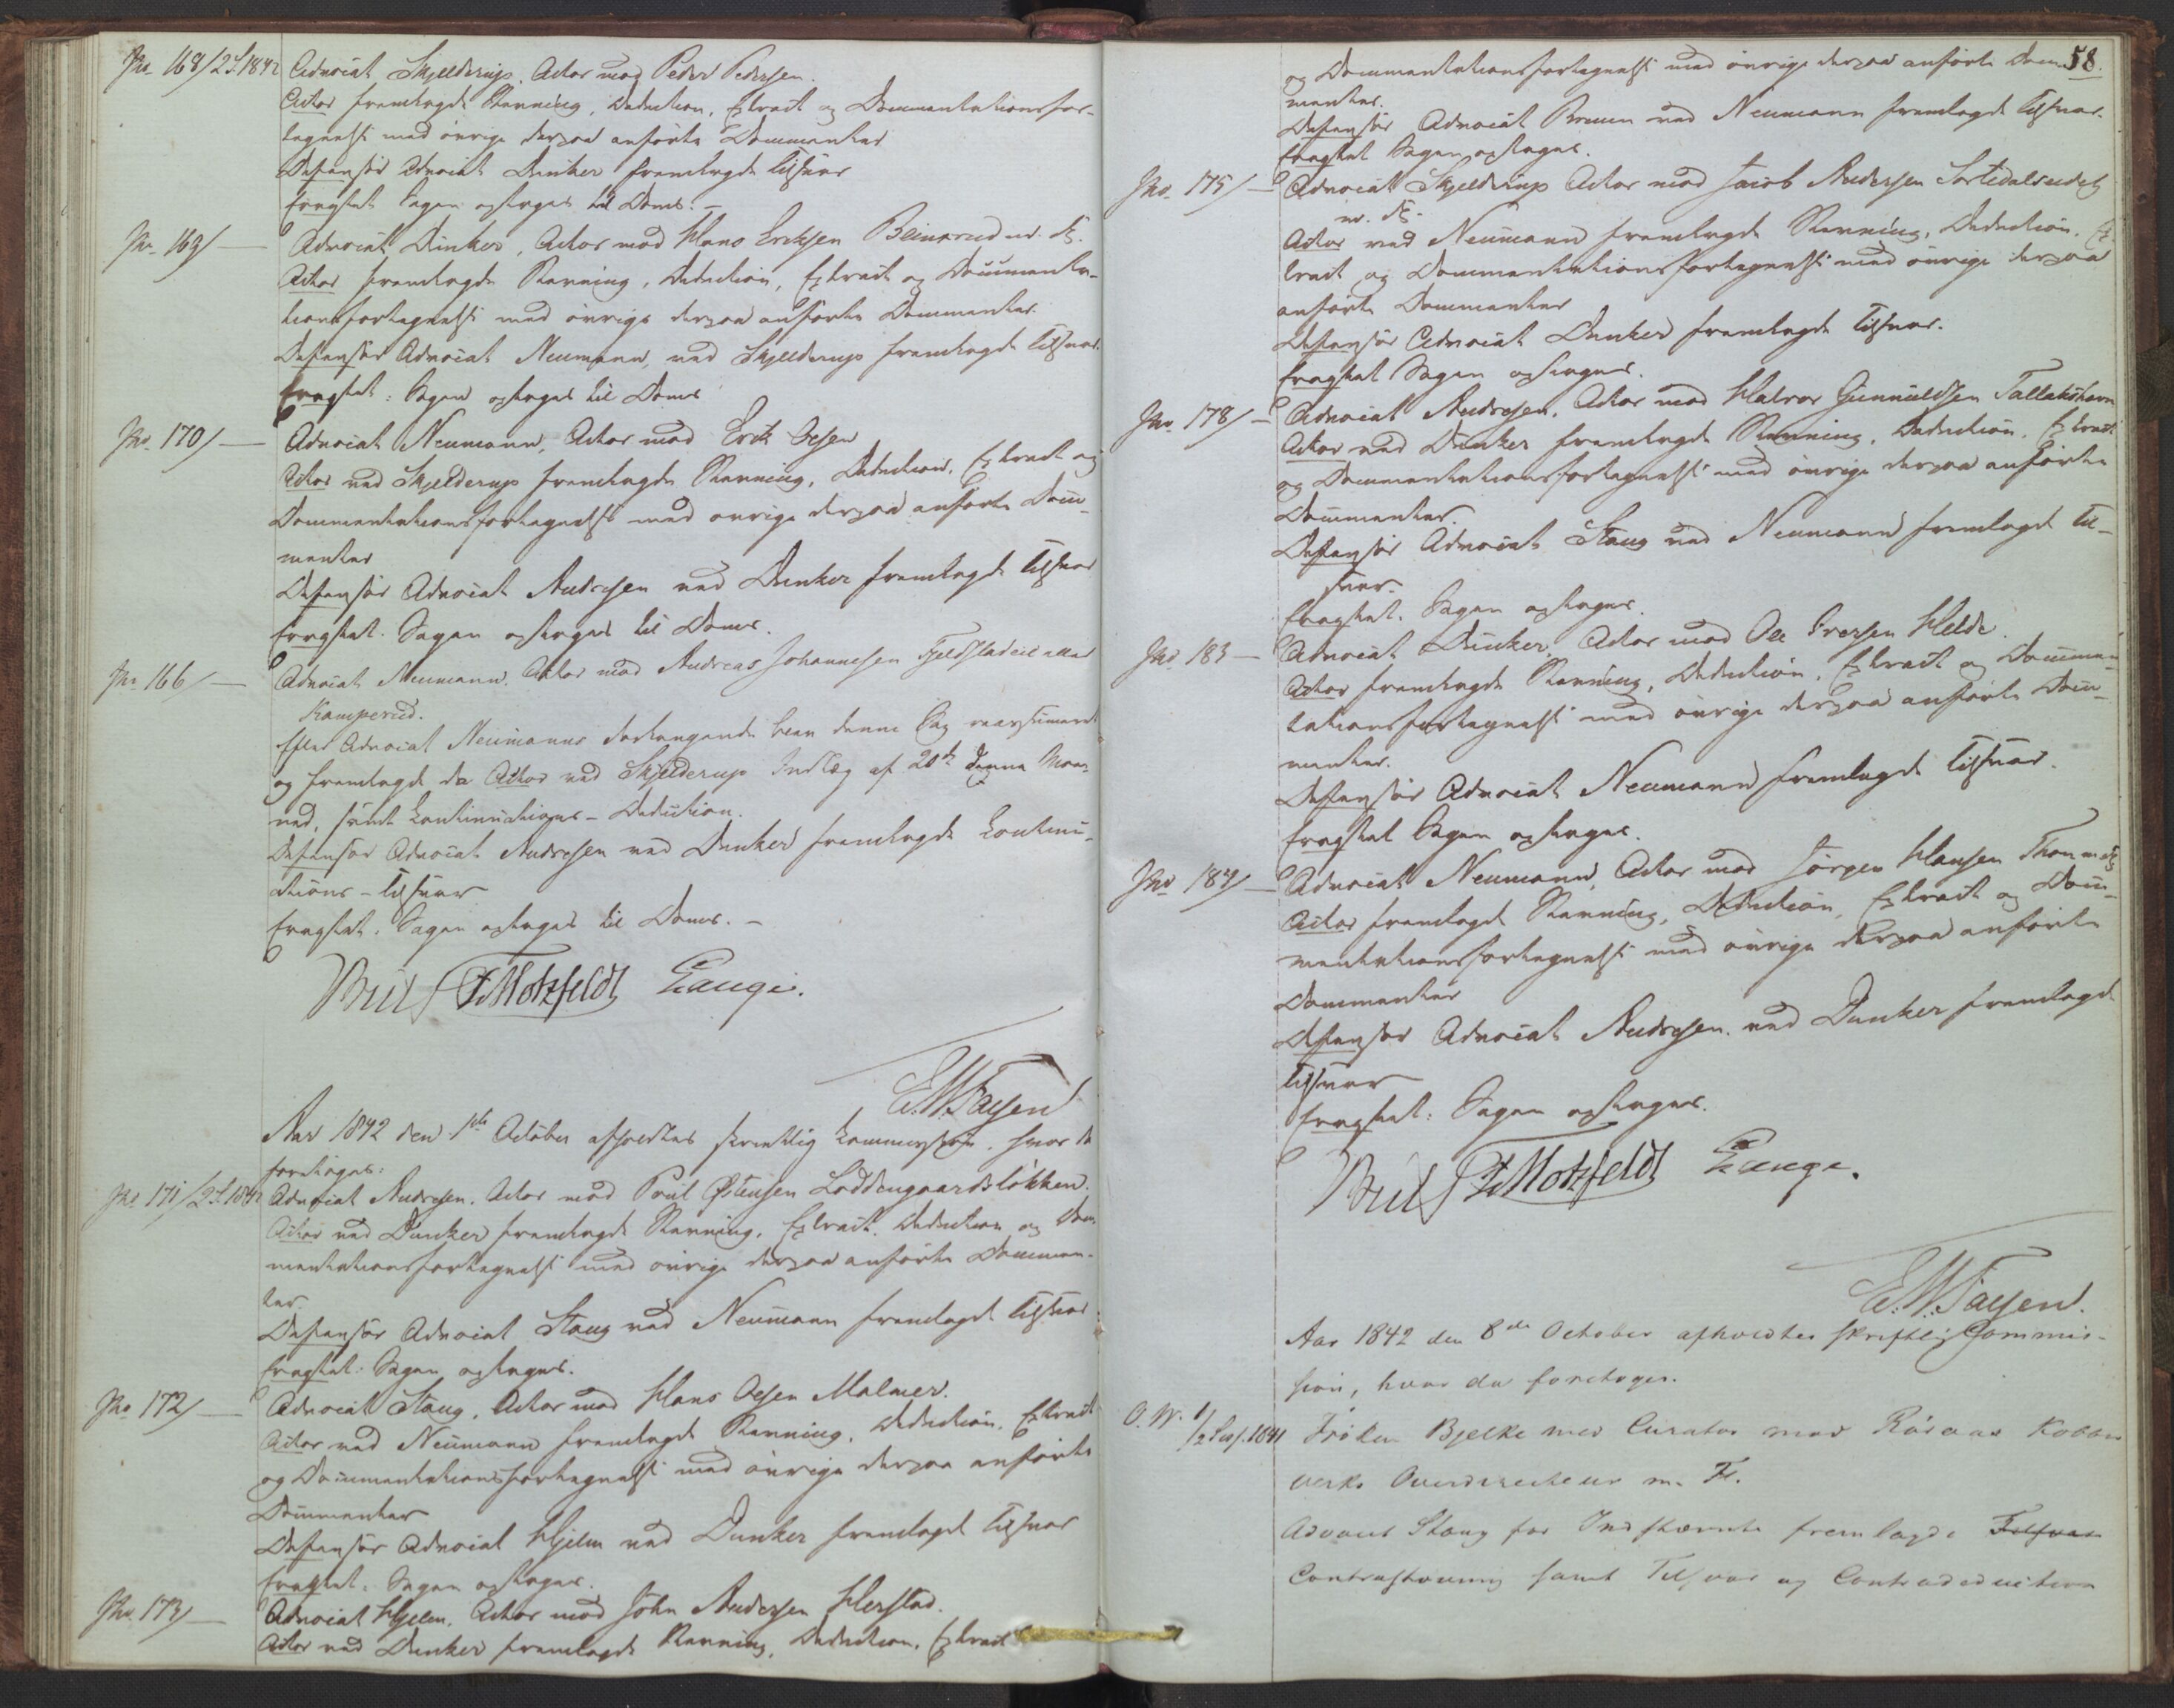 No 168/2S.1842
Advocat Skjelderup, Actor mod Peder Pedersen.
Actor fremlagde Stævning, Deduction, Extract og Documentationsfor-
tegnelse med øvrige derpaa anførte Documenter
Defensor Advocat Dunker fremlagde Tilsvar
Eragtet Sagen optages til Doms. –
No 169/ —
Advocat Dunker, Actor mod Hans Eriksen Beinsrud m. fl.
Actor fremlagde Stævning, Deduction, Extract og Documenta-
tionsfortegnelse med øvrige derpaa anførte Documenter.
Defensor Advocat Neumann, ved Skjelderup fremlagde Tilsvar.
Eragtet: Sagen optages til Doms
No 170/ —
Advocat Neumann, Actor mod Erik Olsen
Actor ved Skjelderup fremlagde Stævning, Deduction, Extract og
Documentationsfortegnelse med øvrige derpaa anførte Docu-
menter
Defensor Advocat Andresen ved Dunker fremlagde Tilsvar
Eragtet. Sagen optages til Doms.
No 166/ —
Advocat Neumann, Actor mod Andreas Johannesen Fjeldstadeie eller
Kamperud.
Efter Advocat Neumanns Forlangende blev denne Sag reassumeret
og fremlagde da Actor ved Skjelderup Indlæg af 20de denne Maa-
ned, samt Continuations-Deduction.
Defensor Advocat Andresen ved Dunker fremlagde Continu-
ations-Tilsvar
Eragtet. Sagen optages til Doms. –
F Motzfeldt Lange.
E.W. Fayen
Aar 1842 den 1ste October afholdtes skriftlig Commission, hvor da
foretages:
No 171/2S.1842
Advocat Andresen, Actor mod Poul Østensen Loddengaardsløkken.
Actor ved Dunker fremlagde Stævning, Extract, Deduction og Docu-
mentationsfortegnelse med øvrige derpaa anførte Documen-
ter.
Defensor Advocat Stang ved Neumann fremlagde Tilsvar
Eragtet: Sagen optages.
No 172/ —
Advocat Stang, Actor mod Hans Olsen Malmer.
Actor ved Neumann fremlagde Stævning, Deduction, Extract
og Documentationsfortegnelse med øvrige derpaa anførte
Documenter
Defensor Advocat Hjelm ved Dunker fremlagde Tilsvar
Eragtet. Sagen optages.
No 173/ —
Advocat Hjelm, Actor mod John Andersen Herstad.
Actor ved Dunker fremlagde Stævning, Deduction, Extract
58.
og Documentationsfortegnelse med øvrige derpaa anførte Docu-
menter.
Defensor Advocat Bruun ved Neumann fremlagde Tilsvar.
Eragtet Sagen optages.
No 175/ —
Advocat Skjelderup Actor mod Jacob Andersen
m. fl.
Actor ved Neumann fremlagde Stævning, Deduction, Ex-
tract og Documentationsfortegnelse med øvrige derpaa
anførte Documenter
Defensor Advocat Dunker fremlagde Tilsvar.
Eragtet Sagen optages.
No 178/ —
Advocat Andresen, Actor mod Halvor Gunnuldsen Tallakshavn
Actor ved Dunker fremlagde Stævning, Deduction, Extract
og Documentationsfortegnelse med øvrige derpaa anførte
Documenter.
Defensor Advocat Stang ved Neumann fremlagde Til-
svar.
Eragtet. Sagen optages.
No 183 —
Advocat Dunker, Actor mod Ole Iversen Helde.
Actor fremlagde Stævning, Deduction, Extract og Documen-
tationsfortegnelse med øvrige derpaa anførte Docu-
menter.
Defensor Advocat Neumann fremlagde Tilsvar.
Eragtet Sagen optages.
No 187/ —
Advocat Neumann, Actor mod Jørgen Hansen Thon m. fl.
Actor fremlagde Stævning, Deduction, Extract og Docu-
mentationsfortegnelse med øvrige derpaa anførte
Documenter
Defensor Advocat Andresen ved Dunker fremlagde
Tilsvar
Eragtet: Sagen optages.
F Motzfeldt Lange.
E.W. Fayen.
Aar 1842 den 8de October afholdtes skriftlig Commis-
sion, hvor da foretoges.
O. No. 1/2 Ses. 1841
Frøken Bjelke med Curator mod Røraas Kobber
verks Overdirecteur m. Fl.
Advocat Stang for Indstævnte fremlagde Tilsvar
Contrastævning samt Tilsvar og Contradeduction